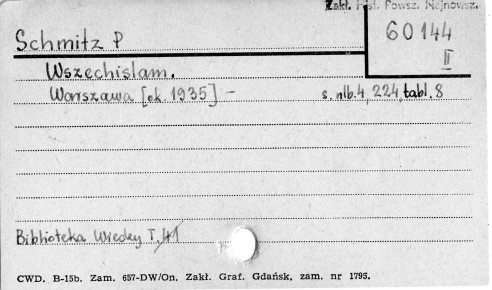 Zakł. Hist. Powsz. Najnowsz.
60144
II
Schmitz P
Wszechislam.
Warszawa [ok. 1935] – s. nlb. 4, 224, tabl. 8
Biblioteka Wiedzy T. 41
CWD. B-15b. Zam. 657-DW/On. Zakł. Graf. Gdańsk, zam. nr 1795.